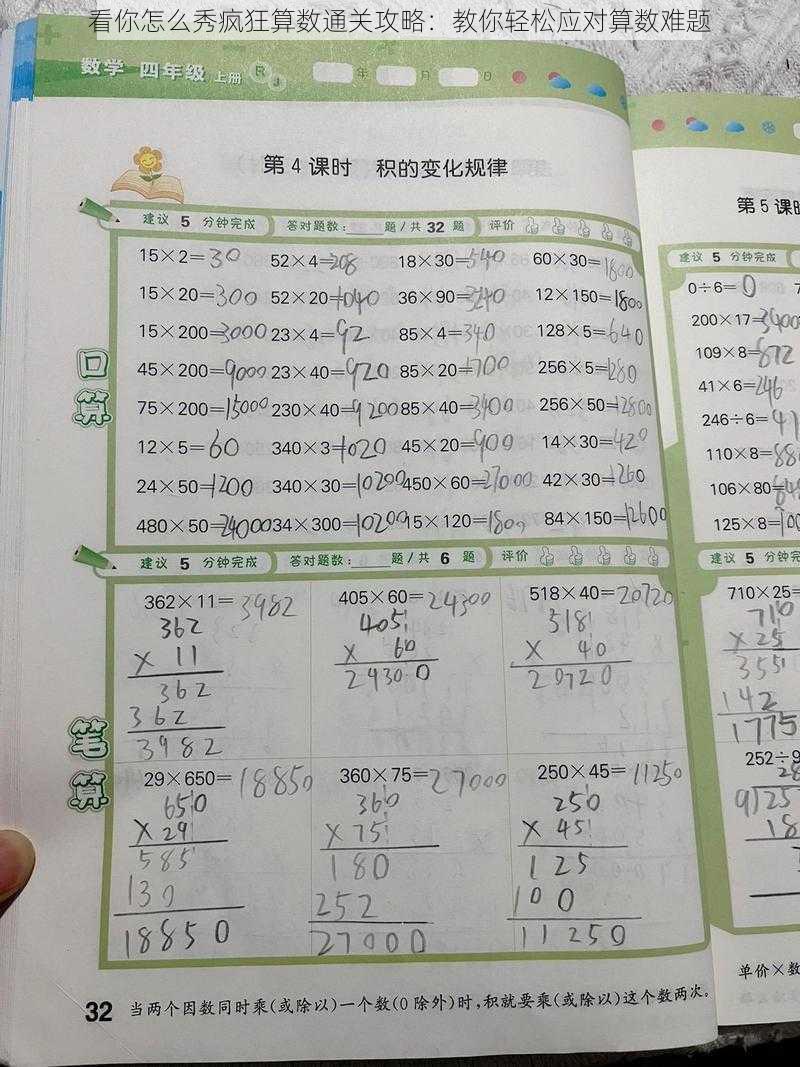 看你怎么秀疯狂算数通关攻略：教你轻松应对算数难题
数学 四年级 上册
年 月 日
第 4 课时 积的变化规律
建议 5 分钟完成 答对题数：____题/共 32 题 评价
口算
15×2=30 52×4=208 18×30=540 60×30=1800
15×20=300 52×20=1040 36×90=3240 12×150=1800
15×200=3000 23×4=92 85×4=340 128×5=640
45×200=9000 23×40=920 85×20=1700 256×5=1280
75×200=15000 230×40=9200 85×40=3400 256×50=12800
12×5=60 340×3=1020 45×20=900 14×30=420
24×50=1200 340×30=10200 450×60=27000 42×30=1260
480×50=24000 34×300=10200 15×120=1800 84×150=12600
建议 5 分钟完成 答对题数：____题/共 6 题 评价
笔算
362×11=3982 405×60=24300 518×40=20720
362 405 518
× 11 × 60 × 40
362 24300 20720
362
3982
29×650=18850 360×75=27000 250×45=11250
650 360 250
×29 ×75 ×45
585 180 125
130 252 100
18850 27000 11250
32 当两个因数同时乘(或除以)一个数(0 除外)时,积就要乘(或除以)这个数两次。
第 5 课时
建议 5 分钟完成
0÷6=0
200×17=3400
109×8=872
41×6=246
246÷6=41
110×8=88
106×80=848
125×8=100
建议 5 分钟完
710×25=
710
×25
355
142
1775
252÷9
28
9)25
18
单价×数